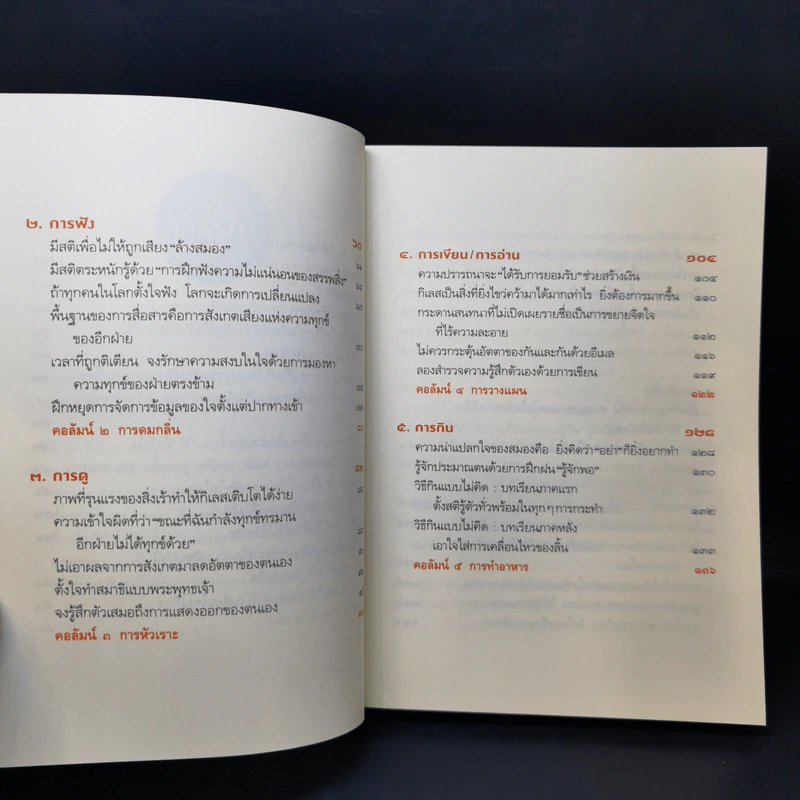 ๒. การฟัง
มีสติเพื่อไม่ให้ถูกเสียง “ล้างสมอง” ๖๐
มีสติตระหนักรู้ด้วย “การฝึกฟังความไม่แน่นอนของสรรพสิ่ง”
ถ้าทุกคนในโลกตั้งใจฟัง โลกจะเกิดการเปลี่ยนแปลง
พื้นฐานของการสื่อสารคือการสังเกตเสียงแห่งความทุกข์
ของอีกฝ่าย
เวลาที่ถูกติเตียน จงรักษาความสงบในใจด้วยการมองหา
ความทุกข์ของฝ่ายตรงข้าม
ฝึกหยุดการจัดการข้อมูลของใจตั้งแต่ปากทางเข้า
คอลัมน์ ๒ การดมกลิ่น
๓. การดู
ภาพที่รุนแรงของสิ่งเร้าทำให้กิเลสเติบโตได้ง่าย
ความเข้าใจผิดที่ว่า “ขณะที่ฉันกำลังทุกข์ทรมาน
อีกฝ่ายไม่ได้ทุกข์ด้วย”
ไม่เอาผลจากการสังเกตมาลดอัตตาของตนเอง
ตั้งใจทำสมาธิแบบพระพุทธเจ้า
จงรู้สึกตัวเสมอถึงการแสดงออกของตนเอง
คอลัมน์ ๓ การหัวเราะ
๔. การเขียน/การอ่าน ๑๐๔
ความปรารถนาจะ “ได้รับการยอมรับ” ช่วยสร้างเงิน ๑๐๔
กิเลสเป็นสิ่งที่ยิ่งไขว่คว้ามาได้มากเท่าไร ยิ่งต้องการมากขึ้น ๑๑๐
กระดานสนทนาที่ไม่เปิดเผยรายชื่อเป็นการขยายจิตใจ
ที่ไร้ความละอาย ๑๑๒
ไม่ควรกระตุ้นอัตตาของกันและกันด้วยอีเมล ๑๑๖
ลองสำรวจความรู้สึกตัวเองด้วยการเขียน ๑๑๙
คอลัมน์ ๔ การวางแผน ๑๒๒
๕. การกิน ๑๒๘
ความน่าแปลกใจของสมองคือ ยิ่งคิดว่า “อย่า” ก็ยิ่งอยากทำ ๑๒๘
รู้จักประมาณตนด้วยการฝึกฝน “รู้จักพอ” ๑๓๐
วิธีกินแบบไม่คิด : บทเรียนภาคแรก
ตั้งสติรู้ตัวทั่วพร้อมในทุกๆ การกระทำ ๑๓๒
วิธีกินแบบไม่คิด : บทเรียนภาคหลัง
เอาใจใส่การเคลื่อนไหวของลิ้น ๑๓๓
คอลัมน์ ๕ การทำอาหาร ๑๓๖